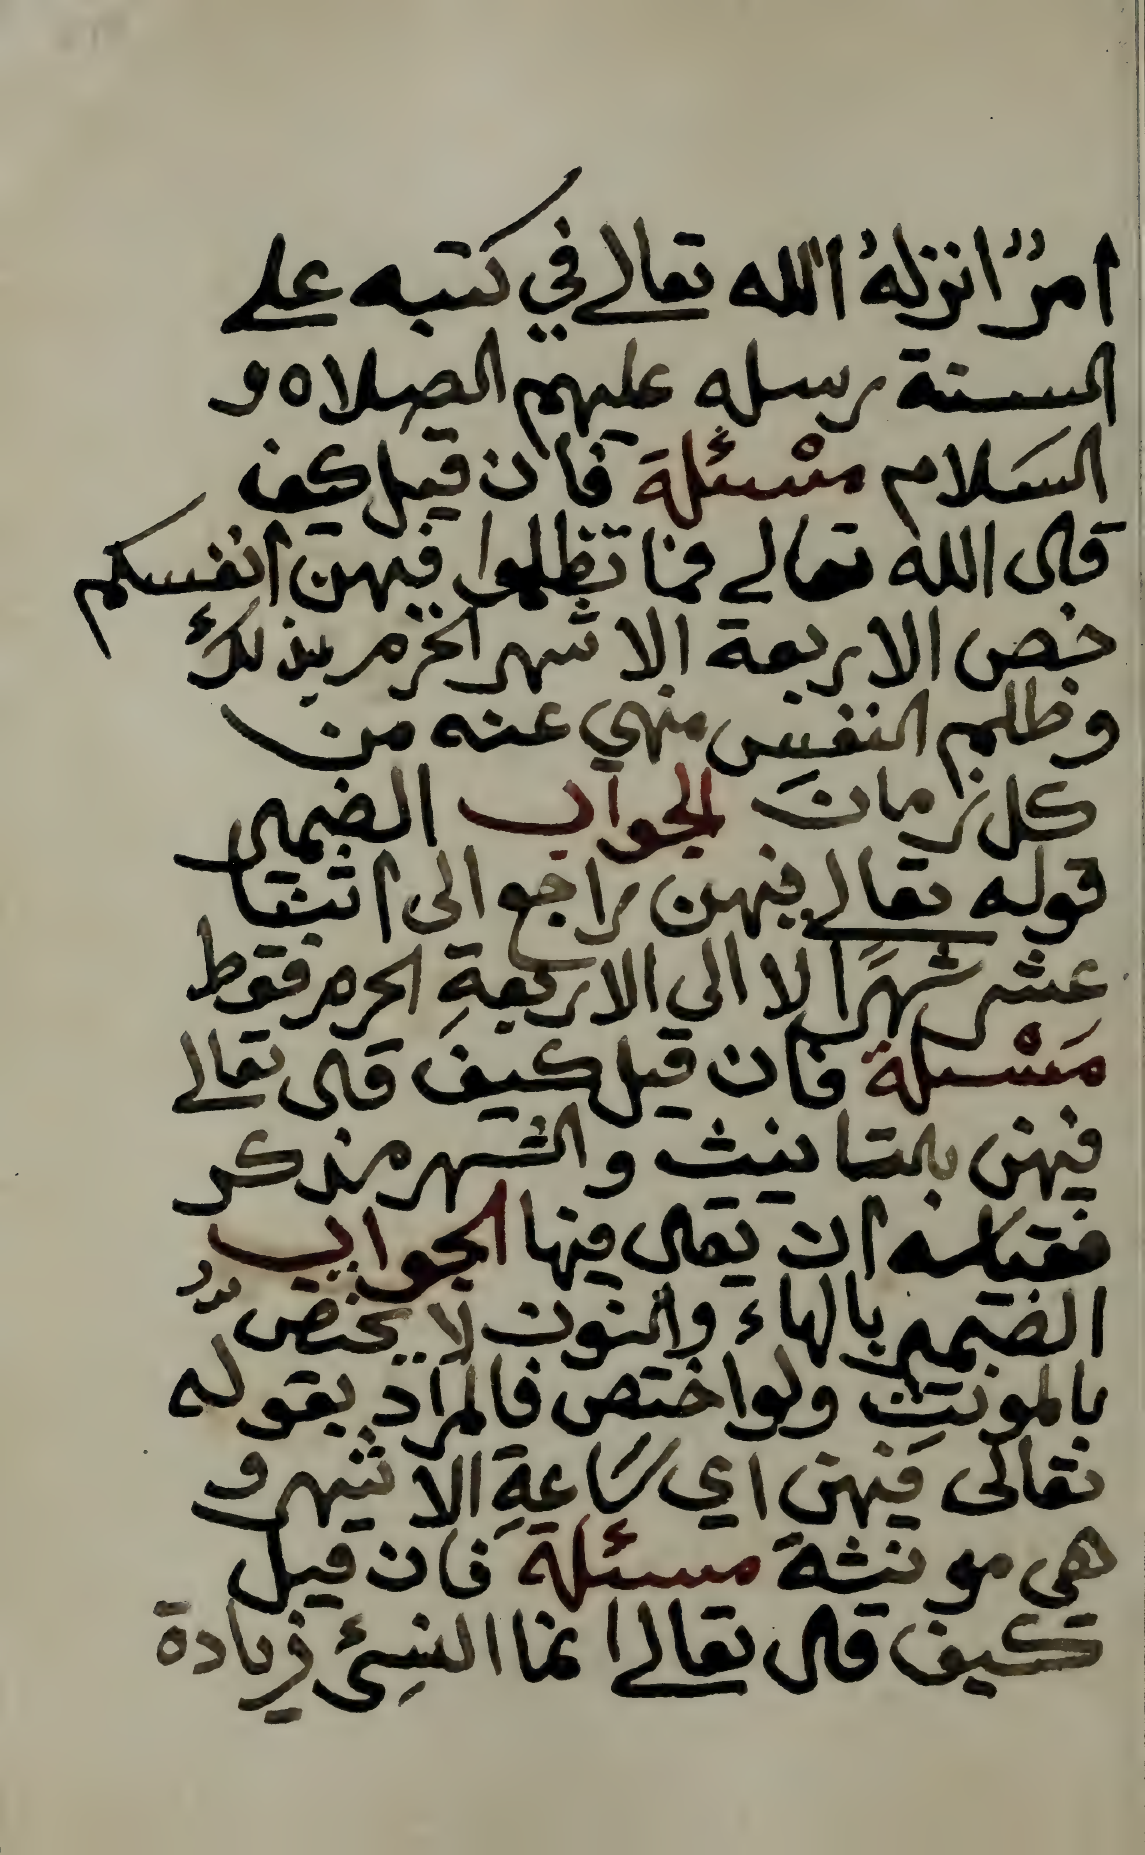 امرٌ انزلهُ الله تعالے في كتبه علے
السنة رسله عليهم الصلاه و
السَلام مسْئلة فان قيل كيف
قال الله تعالے فما تظلموا فيهن انفسكم
خص الاربعة الاشهر الحرم بذلك
وظلم النفس منهي عنه من
كل زمان الجواب الضمير
قوله تعالے فيهن راجع الى اثنتا
عشر شهرًا لا الى الاربعةِ الحرم فقوط
مَسْئلة فان قيل كيف قال تعالے
فيهن بلتانيث والشهر مذكر
فقياسه ان يقال فيها الجواب
الضمير بالهاء والنون لا يختص
بالمونث ولو اختص فالمراد بقوله
تعالى فيهن اي سَاعةِ الاشهر و
هى مونثة مسئلة فان قيل
كيف قال تعالے انما النسِئ زيادة